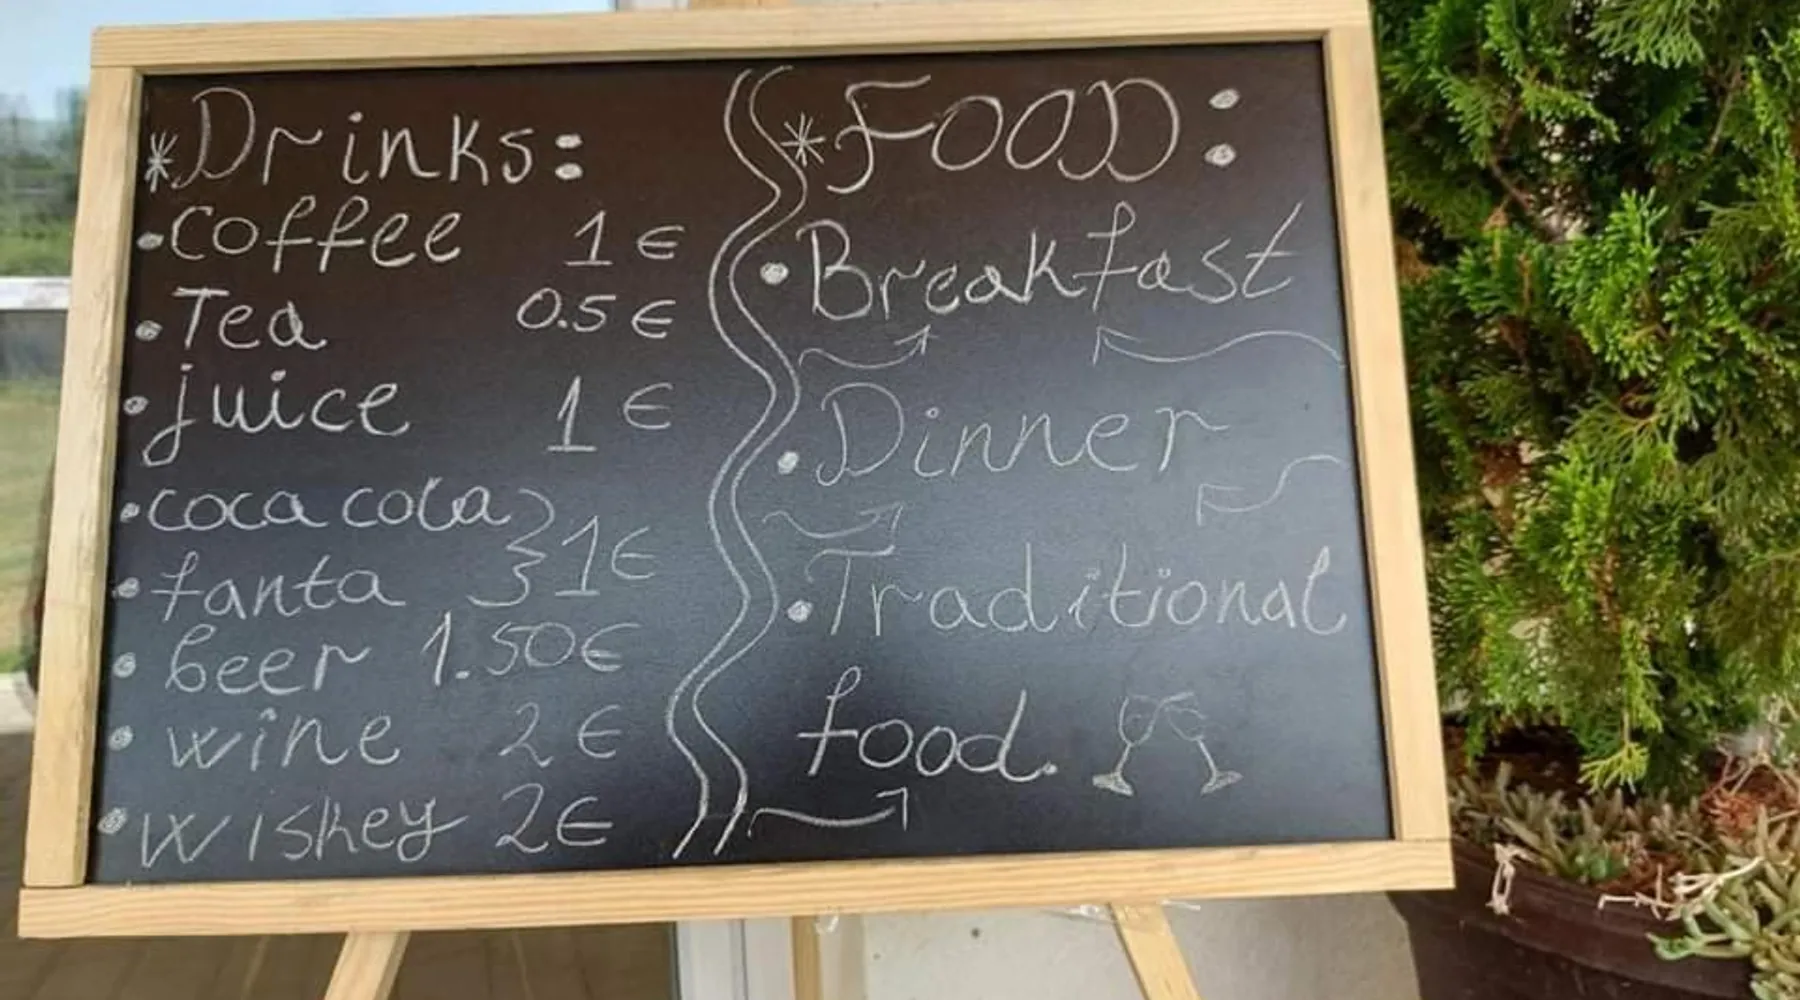 *Drinks:
• coffee 1 €
• Tea 0.5 €
• juice 1 €
• coca cola
• fanta } 1 €
• beer 1.50 €
• wine 2 €
• wiskey 2 €
*FOOD:
• Breakfast
• Dinner
• Traditional
food.